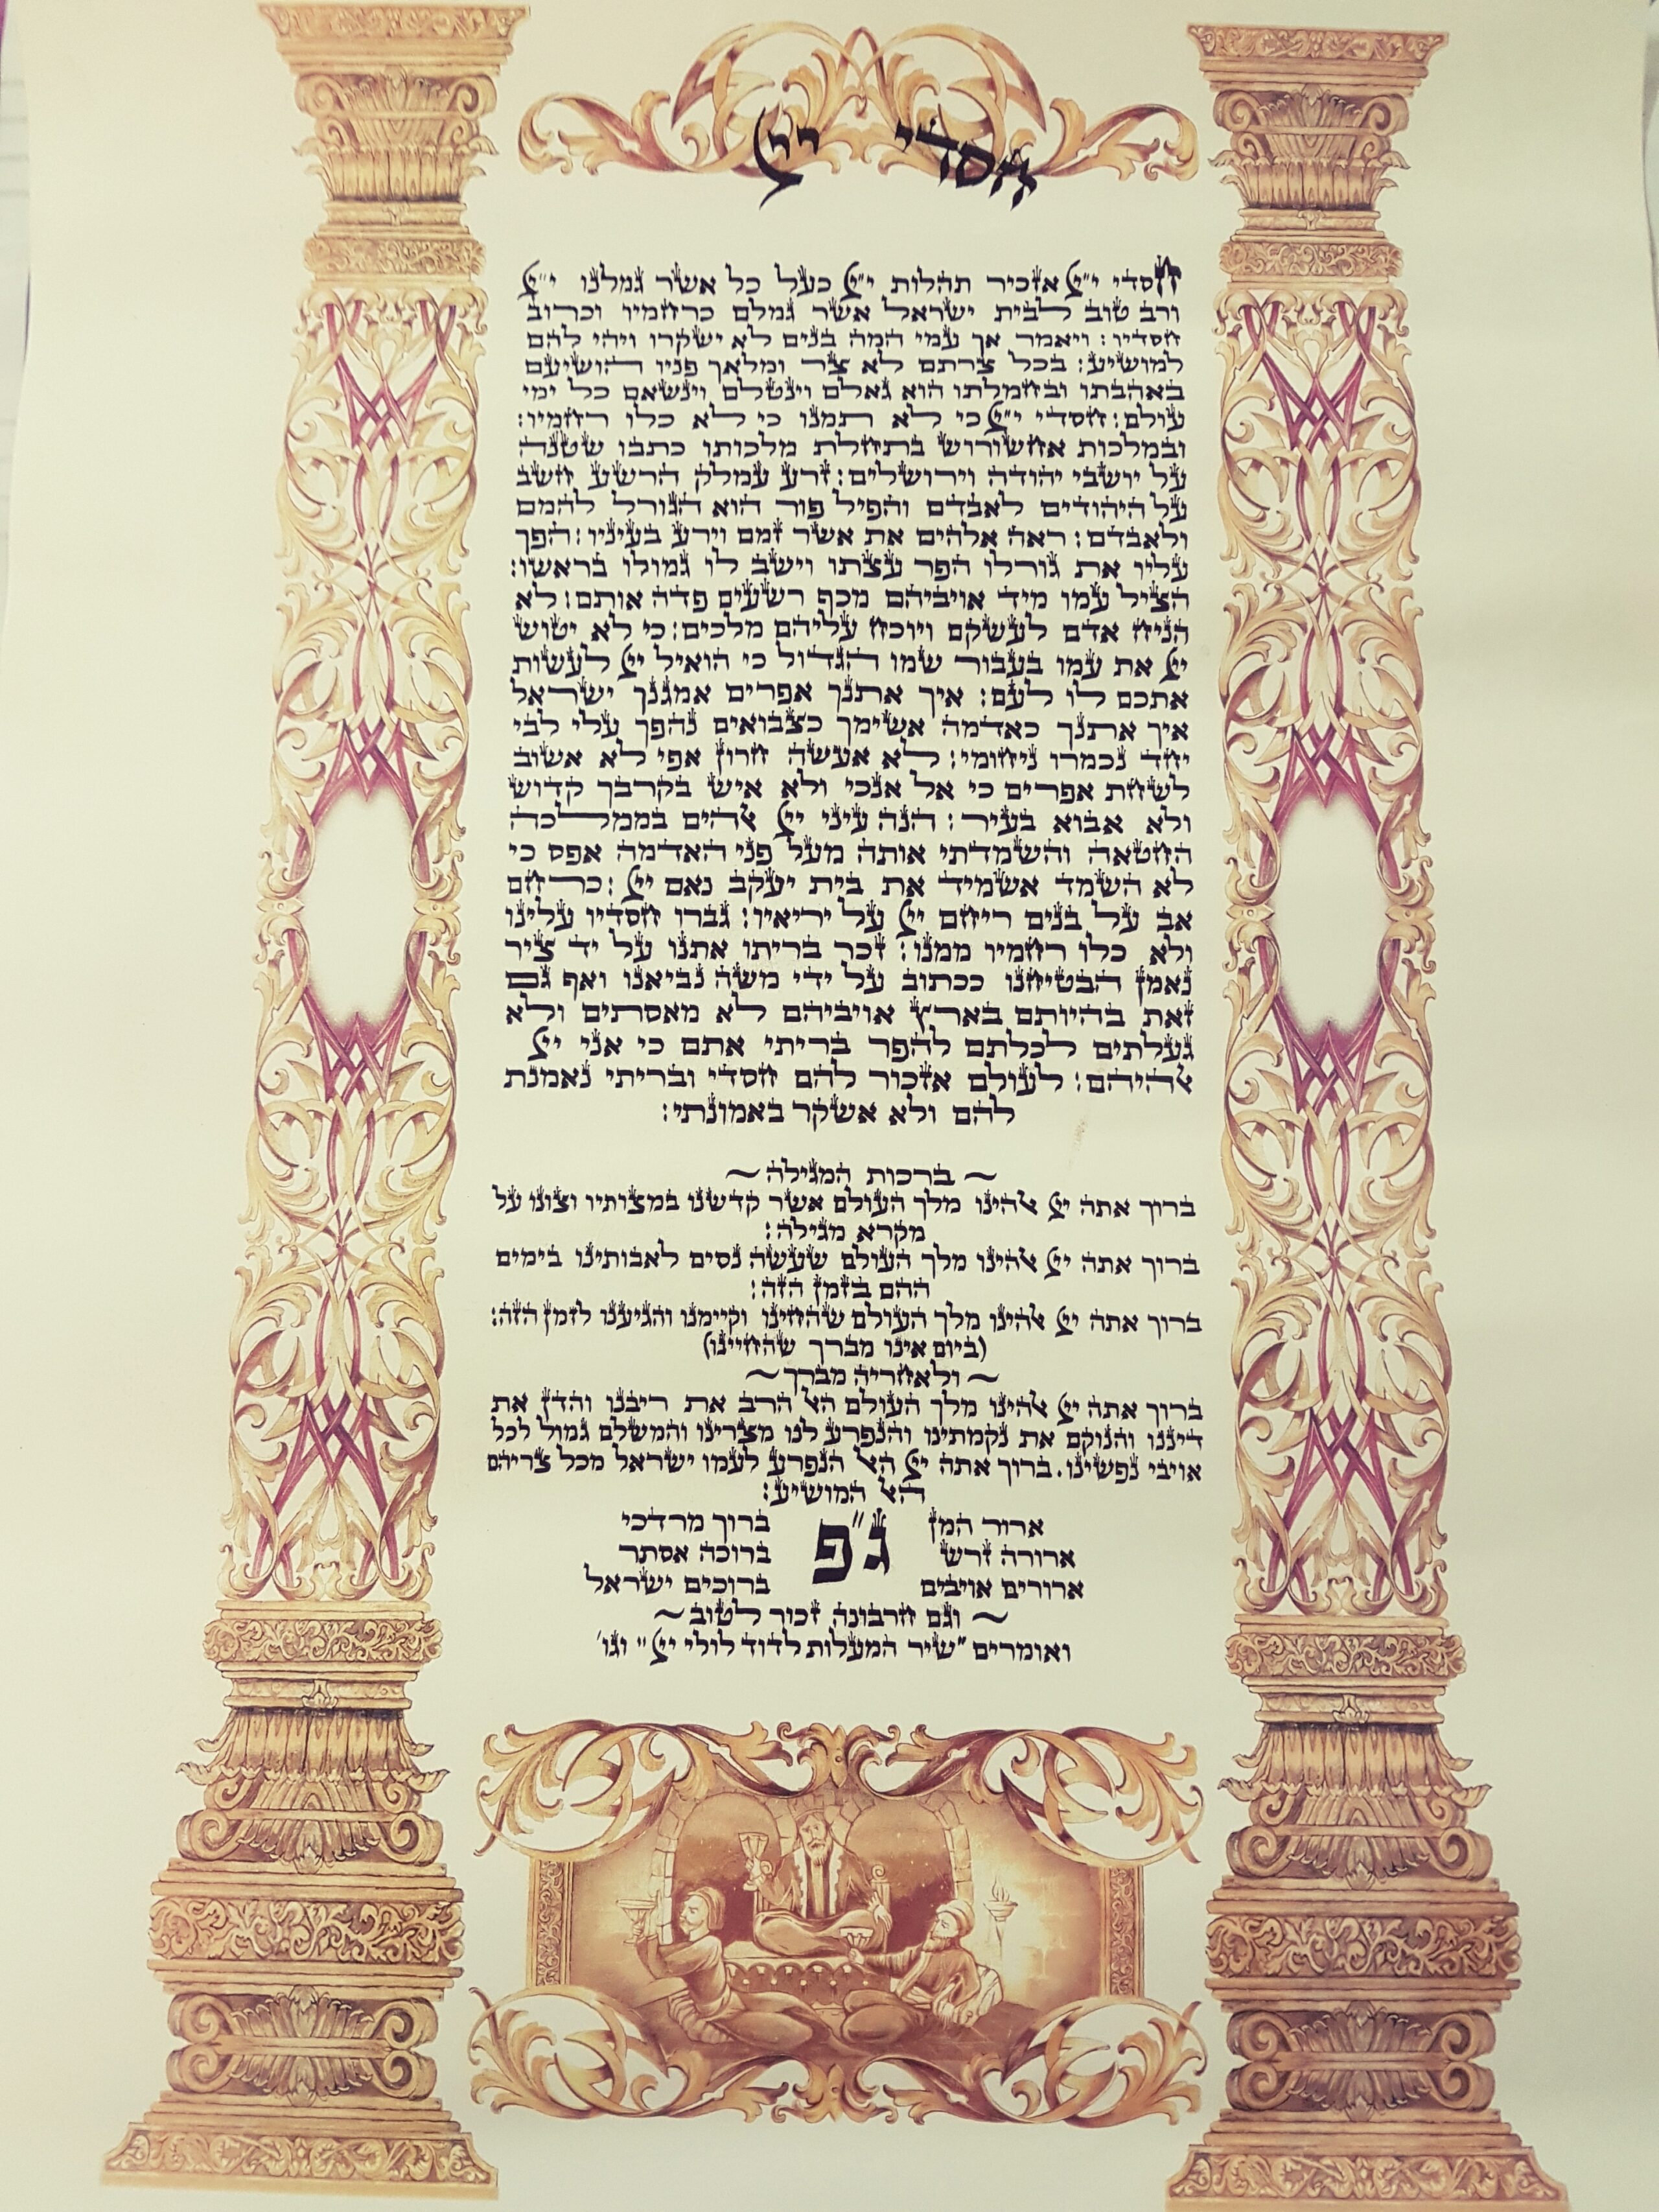 חסדי ייי
חסדי י״י אזכיר תהלות י״י כעל כל אשר גמלנו י״י
ורב טוב לבית ישראל אשר גמלם כרחמיו וכרוב
חסדיו: ויאמר אך עמי המה בנים לא ישקרו ויהי להם
למושיע: בכל צרתם לא צר ומלאך פניו הושיעם
באהבתו ובחמלתו הוא גאלם וינטלם וינשאם כל ימי
עולם: חסדי י״י כי לא תמנו כי לא כלו רחמיו:
ובמלכות אחשורוש בתחלת מלכותו כתבו שטנה
על יושבי יהודה וירושלים: זרע עמלק הרשע חשב
על היהודים לאבדם והפיל פור הוא הגורל להמם
ולאבדם: ראה אלהים את אשר זמם וירע בעיניו: הפך
עליו את גורלו הפר עצתו וישב לו גמולו בראשו:
הציל עמו מיד אויביהם מכף רשעים פדה אותם: לא
הניח אדם לעשקם ויוכח עליהם מלכים: כי לא יטוש
ייי את עמו בעבור שמו הגדול כי הואיל ייי לעשות
אתכם לו לעם: איך אתנך אפרים אמגנך ישראל
איך אתנך כאדמה אשימך כצבואים נהפך עלי לבי
יחד נכמרו ניחומי: לא אעשה חרון אפי לא אשוב
לשחת אפרים כי אל אנכי ולא איש בקרבך קדוש
ולא אבוא בעיר: הנה עיני ייי ﭏהים בממלכה
החטאה והשמדתי אותה מעל פני האדמה אפס כי
לא השמד אשמיד את בית יעקב נאם ייי: כרחם
אב על בנים ריחם ייי על יריאיו: גברו חסדיו עלינו
ולא כלו רחמיו ממנו: זכר בריתו אתנו על יד ציר
נאמן הבטיחנו ככתוב על ידי משה נביאנו ואף גם
זאת בהיותם בארץ אויביהם לא מאסתים ולא
געלתים לכלתם להפר בריתי אתם כי אני ייי
ﭏהיהם: לעולם אזכור להם חסדי ובריתי נאמנת
להם ולא אשקר באמונתי:
~ ברכות המגילה ~
ברוך אתה ייי ﭏהינו מלך העולם אשר קדשנו במצותיו וצונו על
מקרא מגילה:
ברוך אתה ייי ﭏהינו מלך העולם שעשה נסים לאבותינו בימים
ההם בזמן הזה:
ברוך אתה ייי ﭏהינו מלך העולם שהחינו וקיימנו והגיענו לזמן הזה:
(ביום אינו מברך שהחיינו)
~ ולאחריה מברך ~
ברוך אתה ייי ﭏהינו מלך העולם הﭏ הרב את ריבנו והדן את
דיננו והנוקם את נקמתינו והנפרע לנו מצרינו והמשלם גמול לכל
אויבי נפשינו. ברוך אתה ייי הﭏ הנפרע לעמו ישראל מכל צריהם
הﭏ המושיע:
ארור המן ברוך מרדכי
ארורה זרש ג״פ ברוכה אסתר
ארורים אויבים ברוכים ישראל
~ וגם חרבונה זכור לטוב ~
ואומרים "שיר המעלות לדוד לולי ייי" וגו'